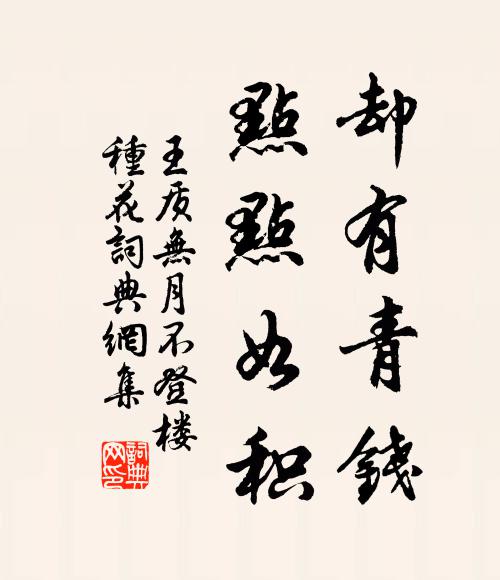 却有青錢
點點如积
王质無月不登楼
種花詞典網集
詞典
网印